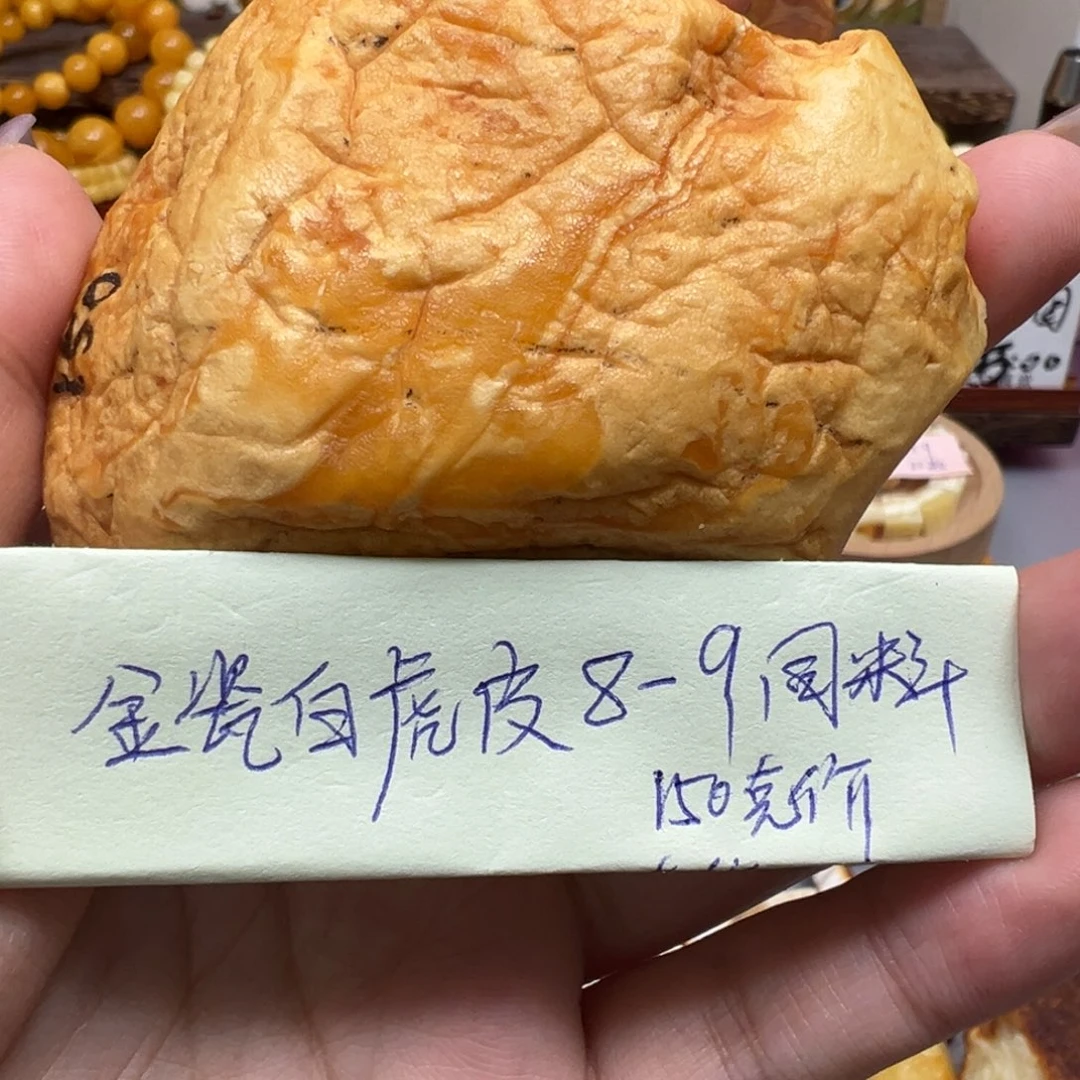 金瓷白虎皮8-9圆料
150克价
150